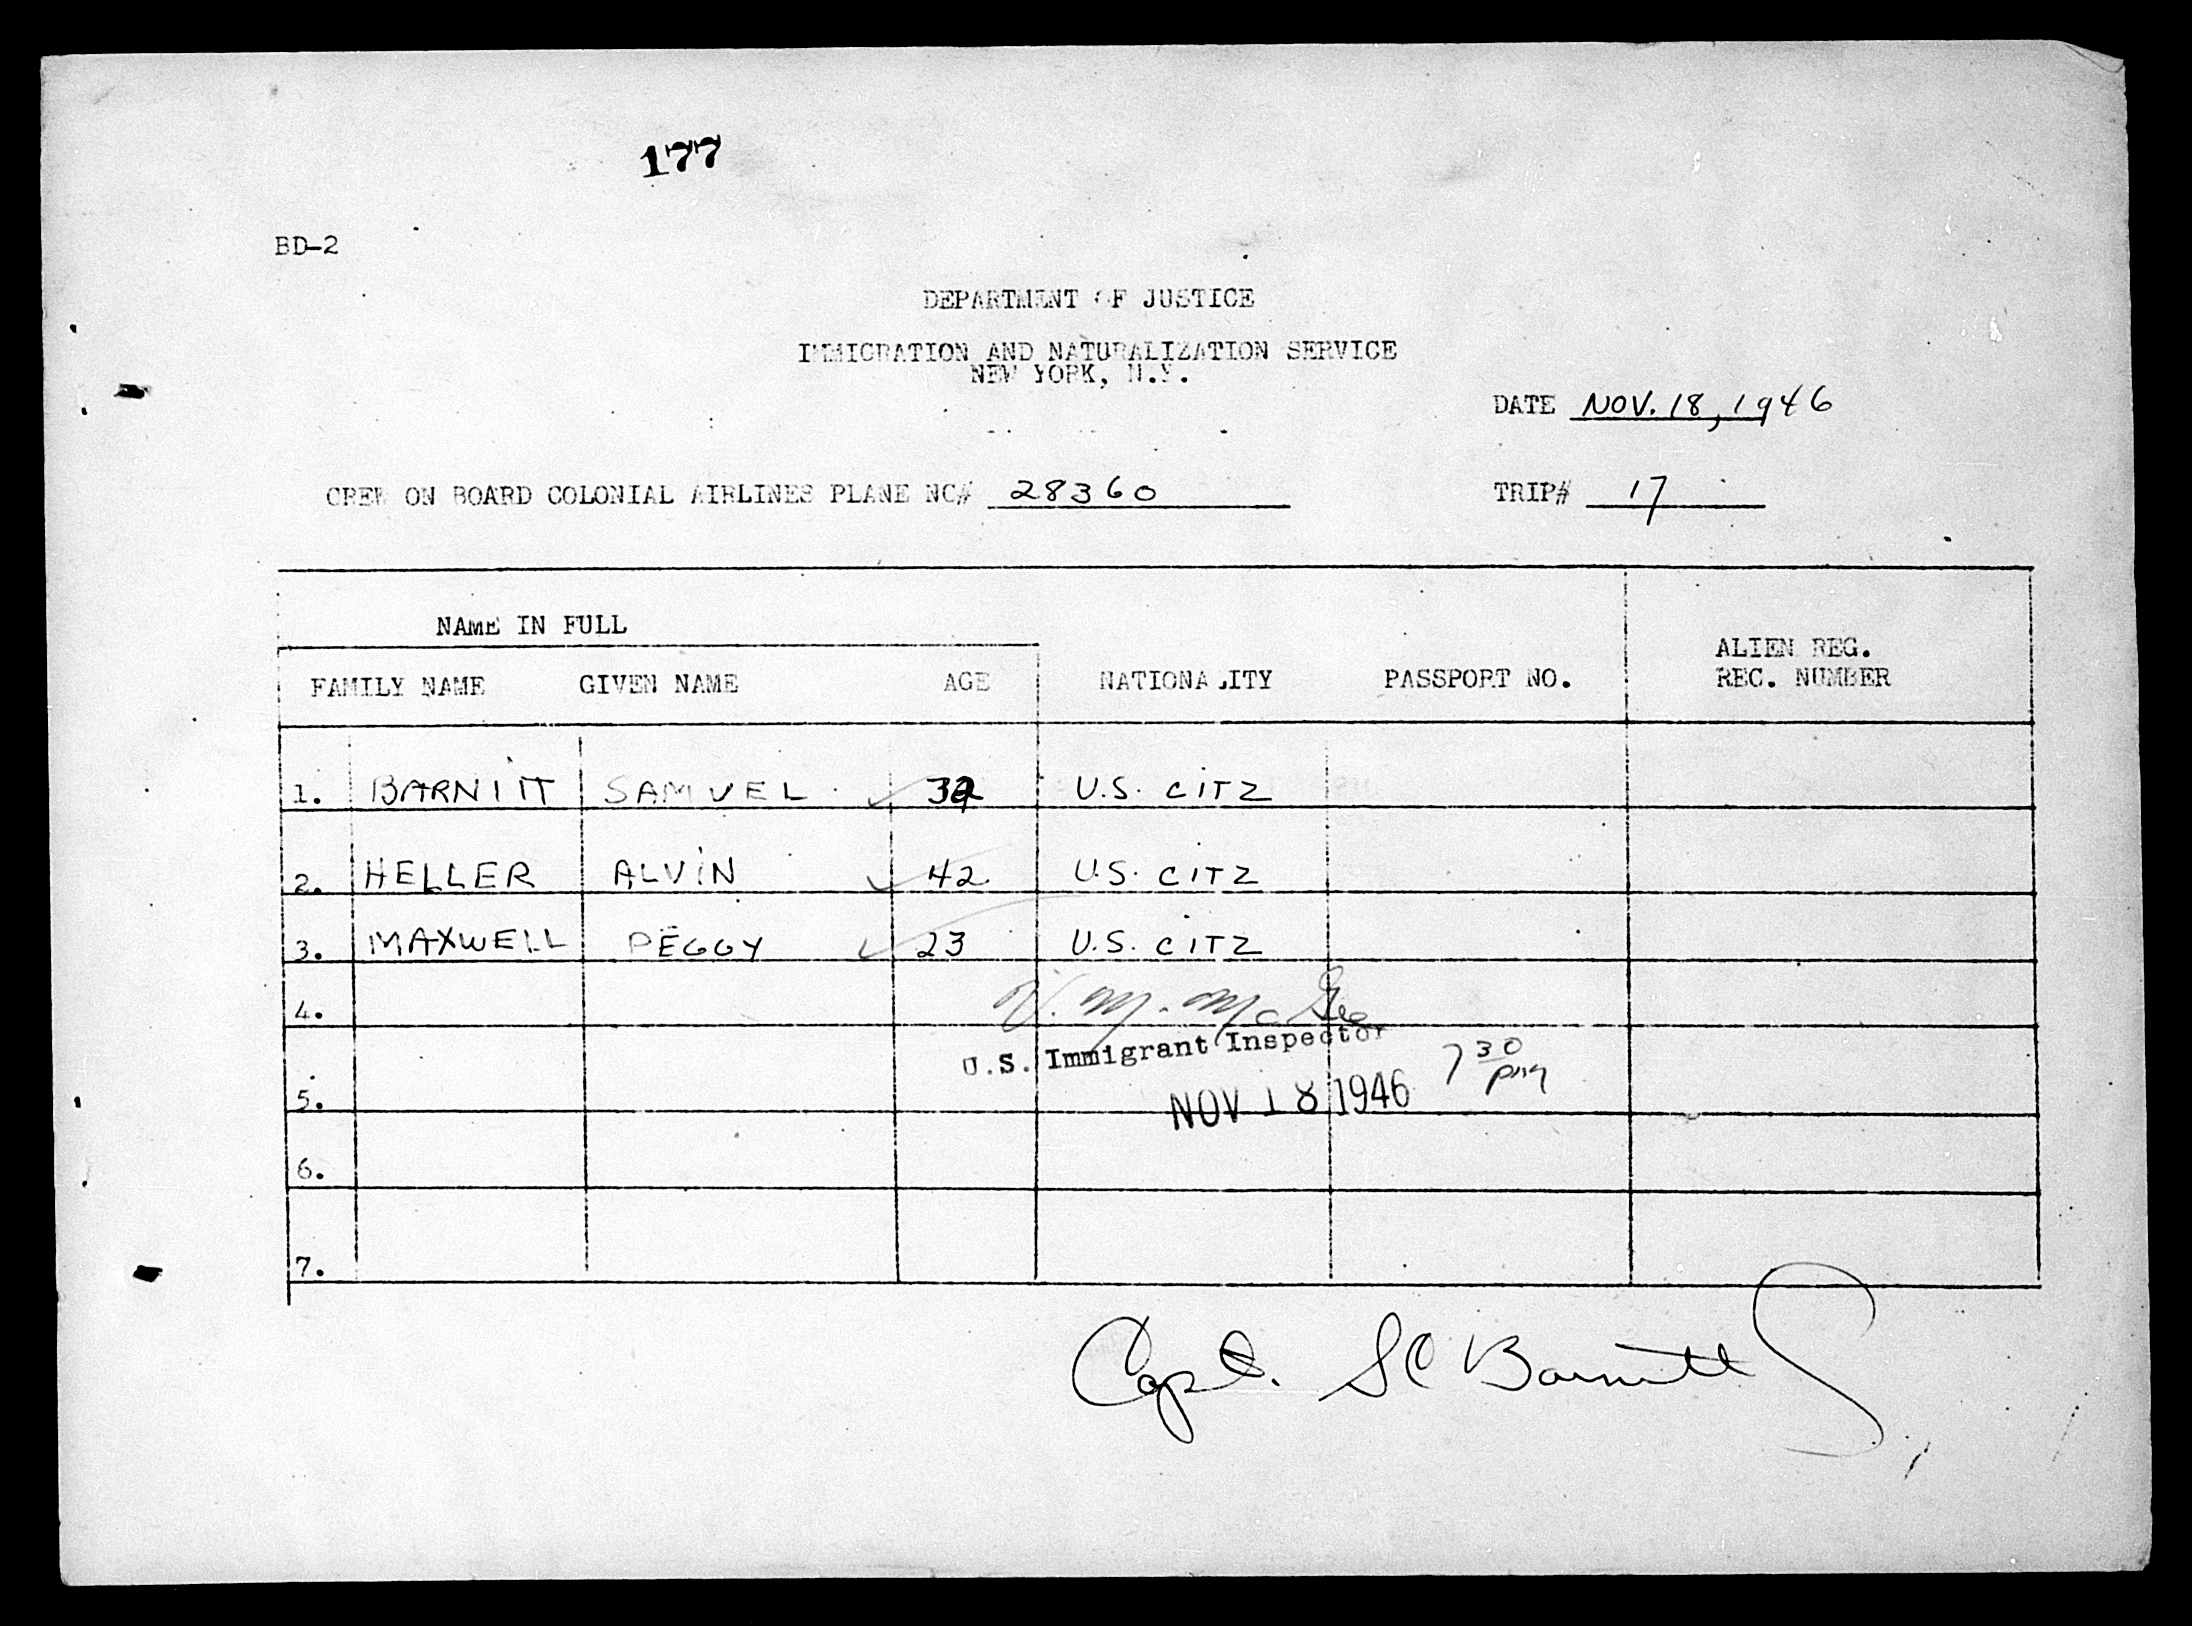 177
BD-2
DEPARTMENT OF JUSTICE
IMMIGRATION AND NATURALIZATION SERVICE
NEW YORK, N.Y.
DATE NOV. 18, 1946
CREW ON BOARD COLONIAL AIRLINES PLANE NC# 28360 TRIP# 17
NAME IN FULL
ALIEN REG.
FAMILY NAME GIVEN NAME AGE NATIONALITY PASSPORT NO. REC. NUMBER
1. BARNITT SAMUEL U.S. CITZ
2. HELLER ALVIN 42 U.S. CITZ
3. MAXWELL PEGGY 23 U.S. CITZ
4. M. McGee
U.S. Immigrant Inspector
7 30 pm
5. NOV 18 1946
6.
7.
Capt. SC Barnitt